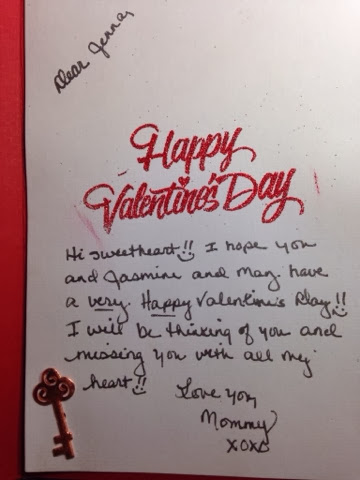 Dear Jenna,
Happy
Valentine's Day
Hi sweetheart!! I hope you
and Jasmine and May have
a very Happy Valentine's Day!!
I will be thinking of you and
missing you with all my
heart!!
Love you,
Mommy
XOXO